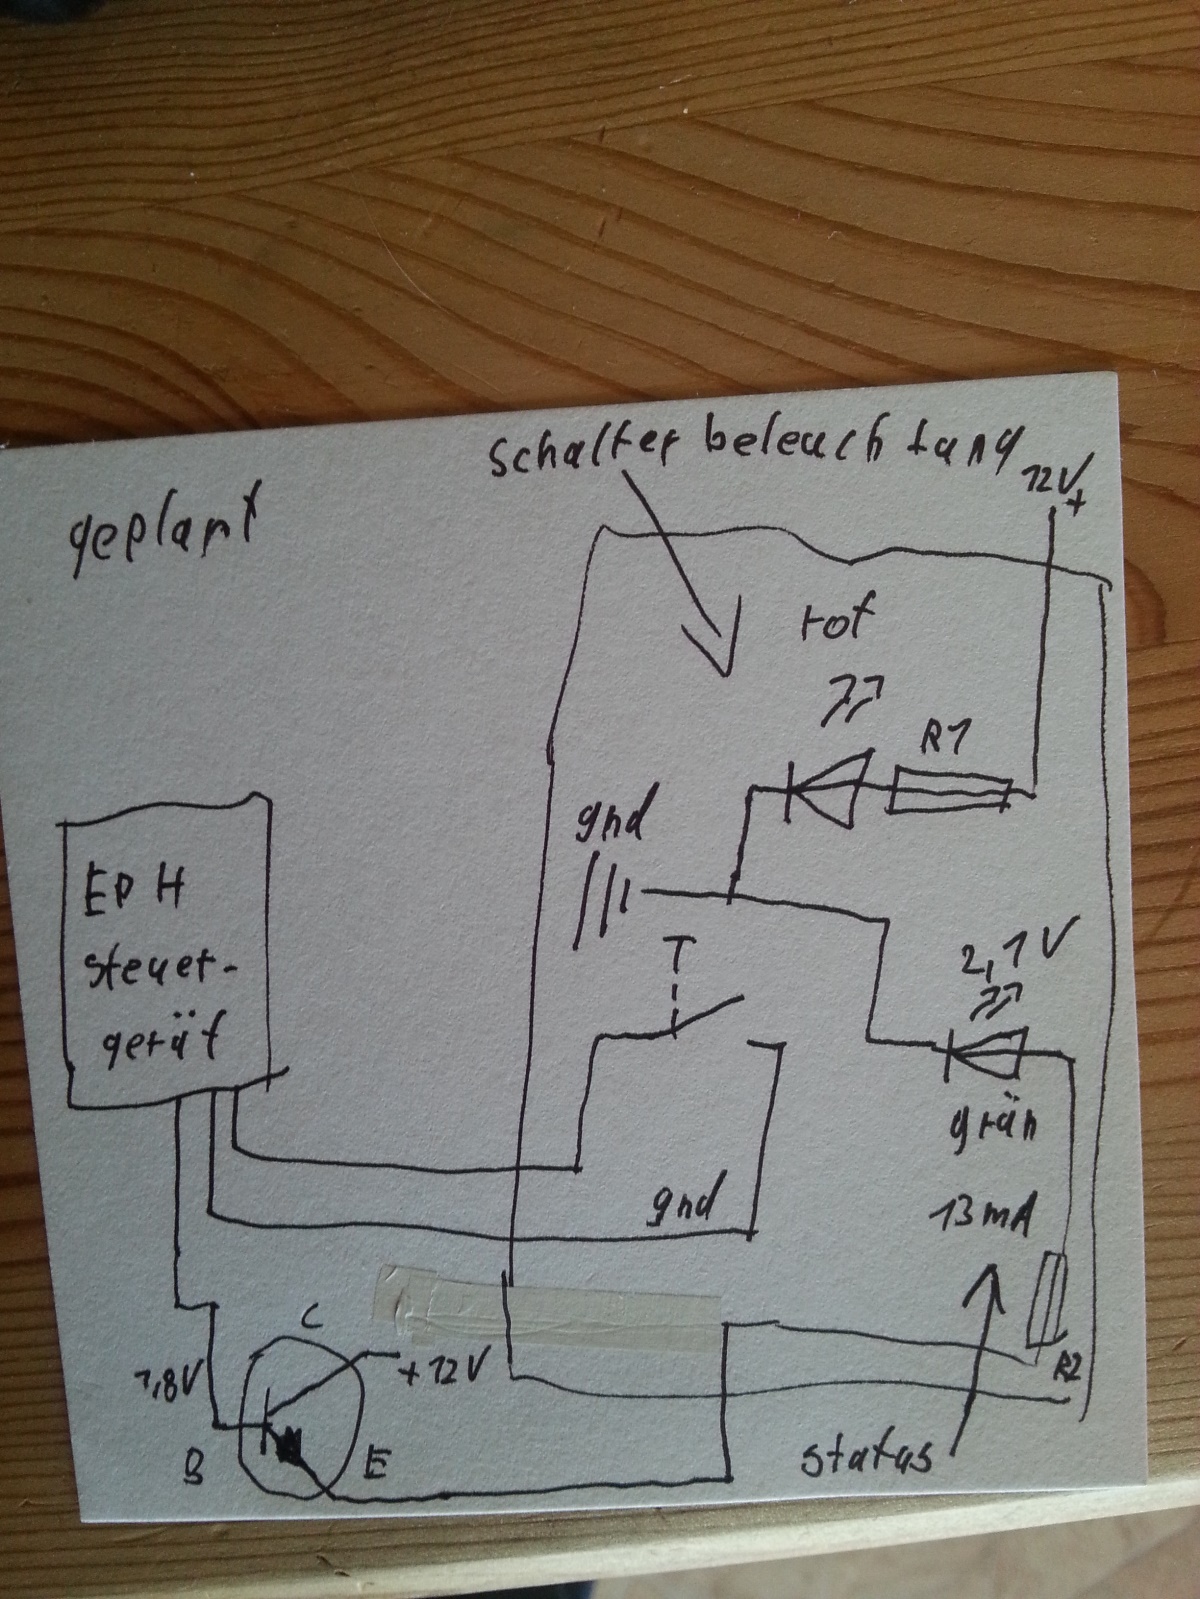 Schalterbeleuchtung
12V
+
geplant
rot
R1
gnd
EPH
steuer-
gerät
T
2,1V
grün
gnd
13mA
C
1,8V
+12V
R2
B
E
status